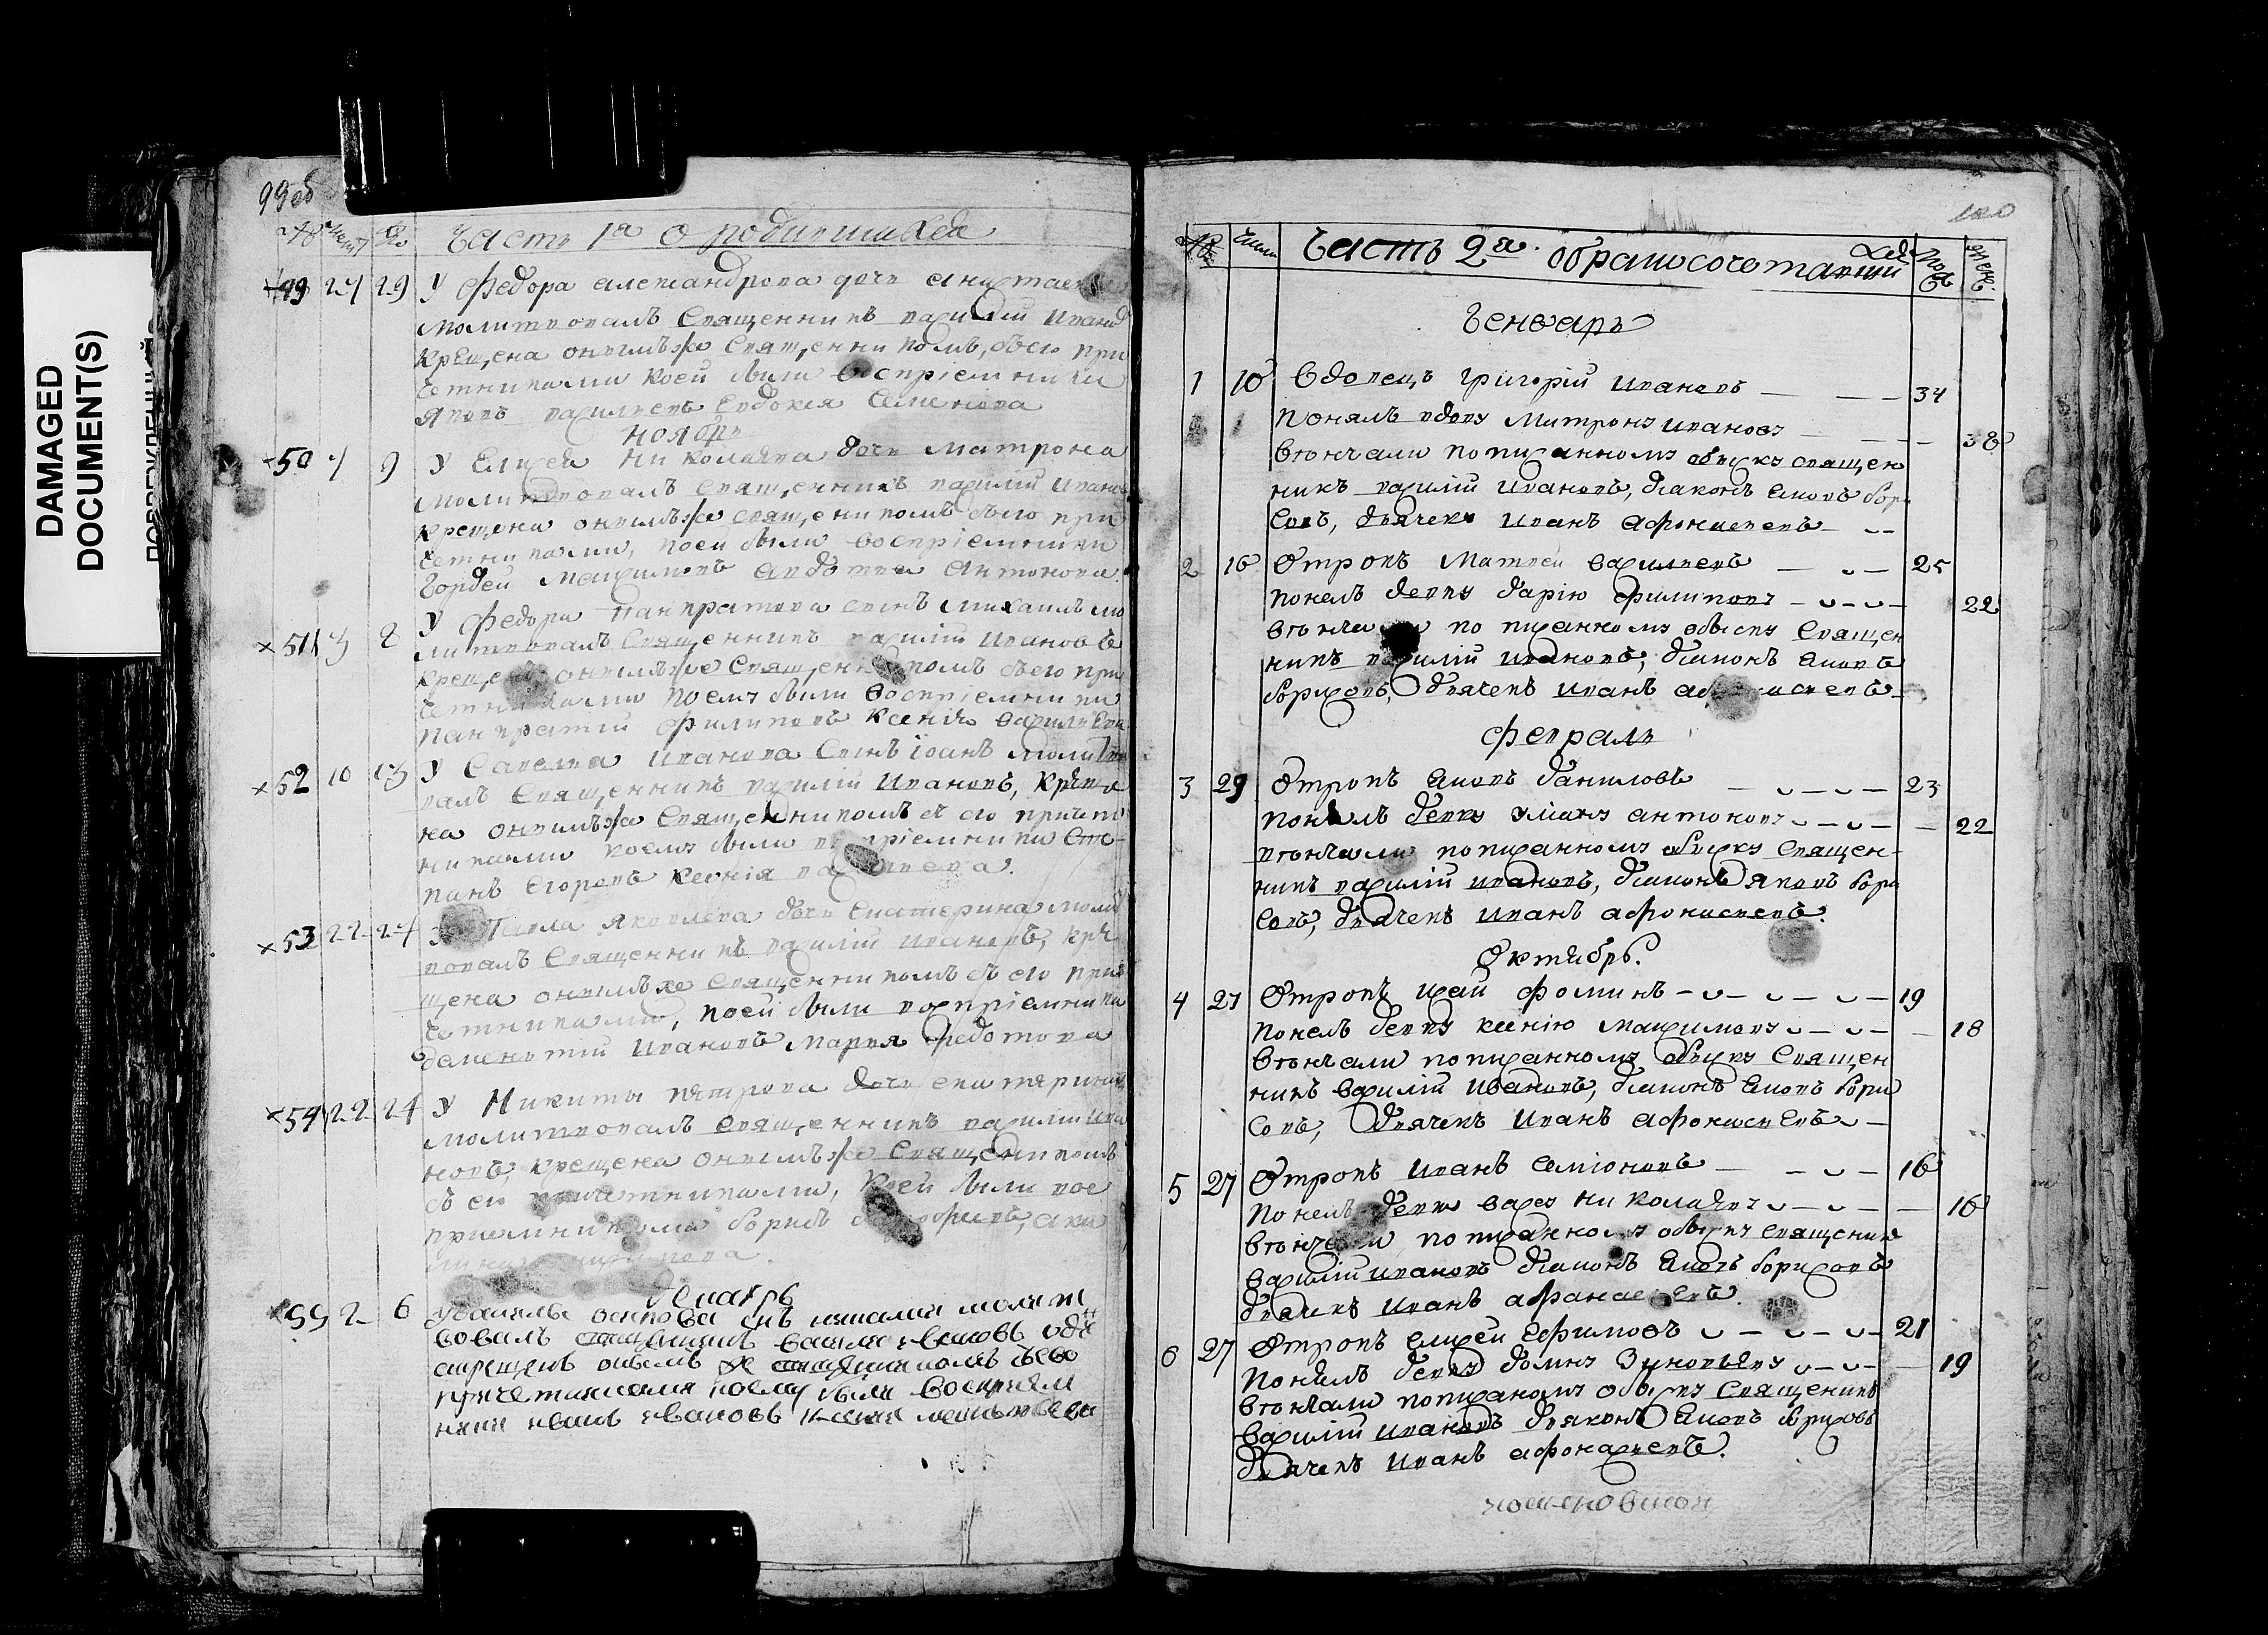 DAMAGED
DOCUMENT(S)
99об
Часть 1я о родившихся
49 24 29 У Федора александрова дочь анастасия
молитвовалъ священникъ василій Иванов
крещена онымъ же священникомъ, съего при
четниками коей были воспріемники
яковъ василиевъ евдокея семенова
ноябрь
50 4 9 У Елисея николаява дочь матрона
молитвовалъ священникъ василій Иванов
крещена онымъ же священникомъ съего при
четниками, коей были воспріемники
гордей максимовъ авдотия антонова
51 3 8 У федора панкратова сынъ михаилъ мо
литвовалъ священникъ василій ивановъ
крещенъ онымъ же священникомъ съего при
четниками коемз были воспріемники
панкратий филиповъ ксенія василиева
52 10 13 У Савелия иванова сынъ іоанъ молитво
валъ священникъ василій Ивановъ, креще
на онымъ же священникомъ съ его причет
никами коемз были воспріемники сте
панъ егоревъ ксенія василиева.
53 22 24 У Павла яковлева дочь екатерина моли
вовалъ священникъ василій ивановъ, кре
щена онымъ же священникомъ съ его при
четниками, коей были воспріемники
дементий ивановъ марья федотова
54 22 24 У Никиты пятрова дочь екатярина
молитвовалъ священникъ василій ива
новъ, крещена онымъ же священникомъ
съ его причетниками, коей были вос
приемниками борисъ
Декабрь
55 2 6
вовалъ священникъ василя ивановъ
крещенъ онымъ же священникомъ съево
причетниками коему были восприем
ники иванъ ивановъ
100
№ Число Часть 2я. обрашосочетавшихся
Генварь
1 10 Вдовецъ григорій ивановъ 34
Понялъ вдовз митронз ивановз 38
вѣнчали пописанномз обыскз священ
никъ василій ивановъ, діаконъ аковъ бори
совъ, дьячекъ иванъ афонасиевъ
2 16 Отрокъ матвей василиевъ 25
понелъ девкз дарію филиповз 22
вѣнчали по писанномз обыскз священ
никъ василій ивановъ, діаконъ аковъ
борисовъ, дьячекъ иванъ афонасиевъ
февраль
3 29 Отрокъ аковъ даниловъ 23
понялъ девкз улианз антоновз 22
вѣнчали пописанномз обыскз священ
никъ василій ивановъ, діаконъ яковъ бори
совъ, дьячекъ иванъ афонасиевъ.
Октябрь.
4 27 Отрокъ исай фоминъ 19
понелъ девкз ксенію максимовз 18
вѣнчали пописанномз обыскз священ
никъ василій ивановъ, діаконъ аковъ бори
совъ, дьячекъ иванъ афонасиевъ
5 27 Отрокъ иванъ семіоновъ 16
понелъ девкз васез николаявз 16
вѣнчали пописанномз обыскз священикъ
василій ивановъ діаконъ аковъ борисовъ
дьячекъ иванъ афанасиевъ.
6 27 Отрокъ елисей ефимовъ 21
понялъ девкз домнз Зиновьявз 19
вѣнчали пописаномз обыскз священикъ
василій ивановъ дьяконъ аковъ борисовъ
дьячекъ иванъ афонасиевъ.